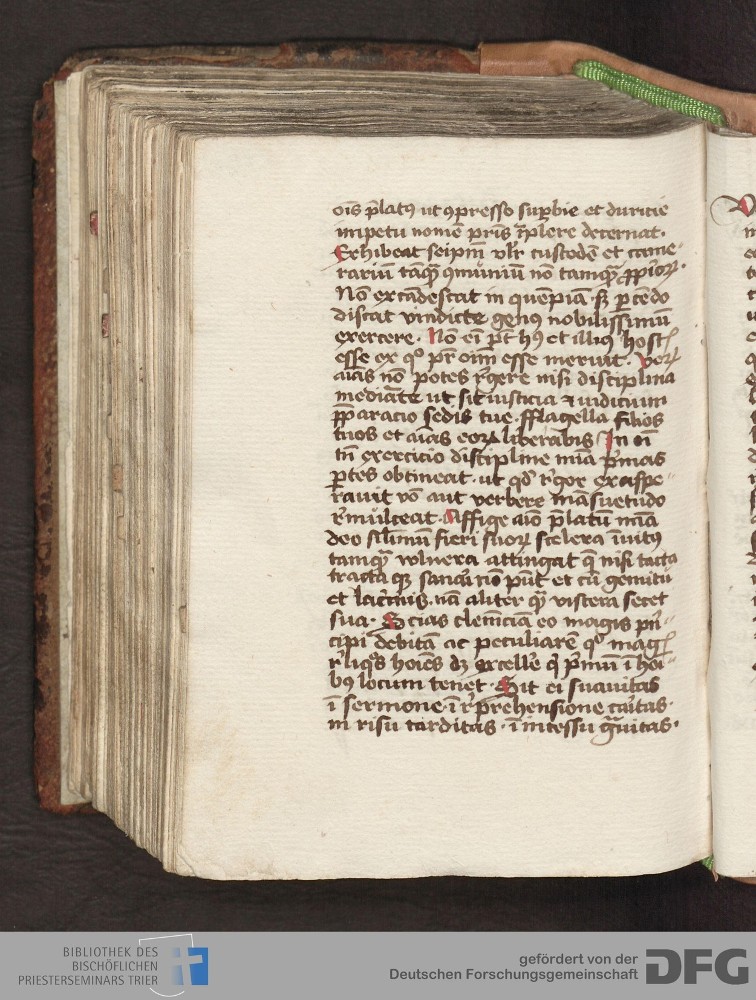 oīs p̄latꝯ ut ꝯpresso sup̱bie et duricie
impetu nomē pr̄is īplere decernat.
Exhibeat seip̄m vl̄r custodē et came-
rariū tāqꝫ ꝯmuniū nō tamqꝫ ꝓpꝛioꝝ.
Nō excādescat in quēpiā sꝫ p̱cēdo
discat vindicte genꝯ nobilissimū
exercere. Nō eī pt̄ hꝯ et illiꝯ host
esse ex qͦ pr̄ oīm esse meruit.
aīas nō potes rͤgere nisi disciplina
mediāte ut sit iusticia ⁊ iudicium
p̄paracio sedis tue. fflagella filios
tuos et aīas eoꝝ liberabis In oī
tn̄ exercicio discipline mīa pͥmas
ꝑtes obtineat. ut qd̄ rͥgor exaspe-
rauit vō aut verbere māsuetudo
rͤmulceat. Affige aīo p̄latū mīa
deo silīmū fieri suoꝝ scelera īuitꝯ
tamqꝫ vulnera attingat q̄ nisi tacta
tracta qꝫ sanari nō pn̄t et cū gemitu
et lacrͥmis. nā aliter qꝫ viscera secet
sua. Scias clemēciā eo magis pͥn-
cipi debitā ac peculiarē qͦ mag
rͤliqͦs hoīes dꝫ excellͤe qͥ pͥmū ī hoī-
bꝯ locum tenet. Sit ei suauitas
ī sermone. ī rͤprehensione caͥtas.
in risu tarditas. ī incessu gͣuitas.
BIBLIOTHEK DES
BISCHÖFLICHEN
PRIESTERSEMINARS TRIER
gefördert von der
Deutschen Forschungsgemeinschaft
DFG